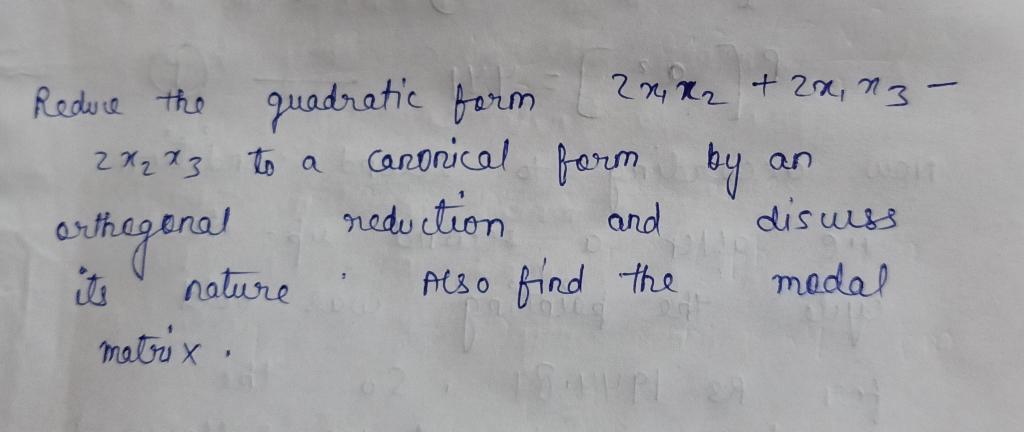 Reduce the quadratic form 2x₁x₂ + 2x₁x₃ −
2x₂x₃ to a canonical form by an
orthogonal reduction and discuss
its nature . Also find the modal
matrix .